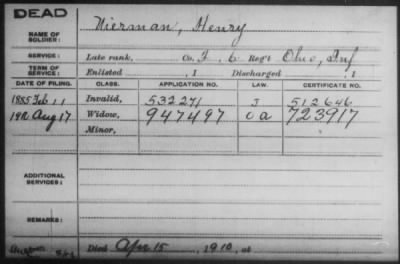 DEAD
NAME OF SOLDIER: Nierman, Henry
SERVICE: Late rank, Co. F, 6 Reg't Ohio, Inf
TERM OF SERVICE: Enlisted , 1 Discharged , 1
DATE OF FILING. CLASS. APPLICATION NO. LAW. CERTIFICATE NO.
1885 Feb 11 Invalid, 532271 J 512646
Aug 17 Widow, 947497 723917
Minor,
ADDITIONAL SERVICES:
REMARKS:
Died Apr 15, 1910, at